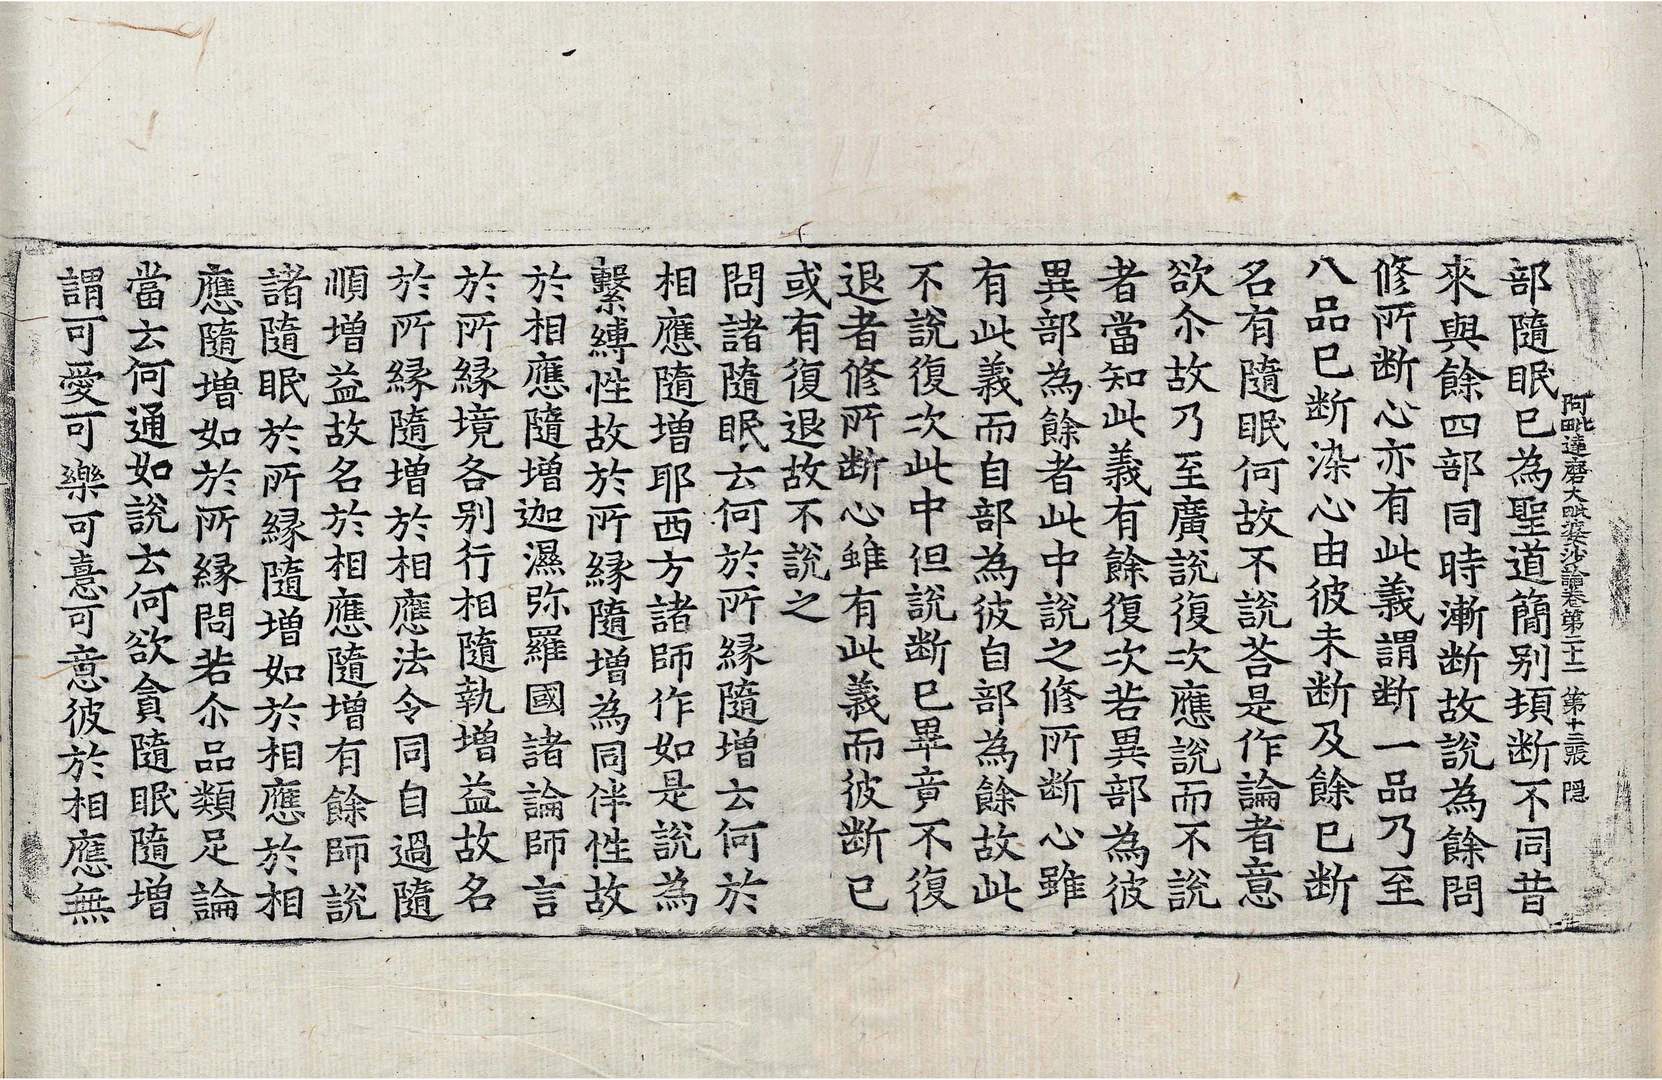 阿毗達磨大毗婆沙論卷第二十二 第十二張 隠
部隨眠已為聖道簡别頓断不同昔
來與餘四部同時漸断故說為餘問
修所断心亦有此義謂断一品乃至
八品已断染心由彼未断及餘已断
名有隨眠何故不說荅是作論者意
欲尒故乃至廣說復次應說而不說
者當知此義有餘復次若異部為彼
異部為餘者此中說之修所断心雖
有此義而自部為彼自部為餘故此
不說復次此中但說断已畢竟不復
退者修所断心雖有此義而彼断已
或有復退故不說之
問諸隨眠云何於所緣隨增云何於
相應隨增耶西方諸師作如是說為
繫縛性故於所緣隨增為同伴性故
於相應隨增迦濕弥羅國諸論師言
於所緣境各别行相隨執增益故名
於所緣隨增於相應法令同自過隨
順增益故名於相應隨增有餘師說
諸隨眠於所緣隨增如於相應於相
應隨增如於所緣問若尒品類足論
當云何通如說云何欲貪隨眠隨增
謂可愛可樂可憙可意彼於相應無